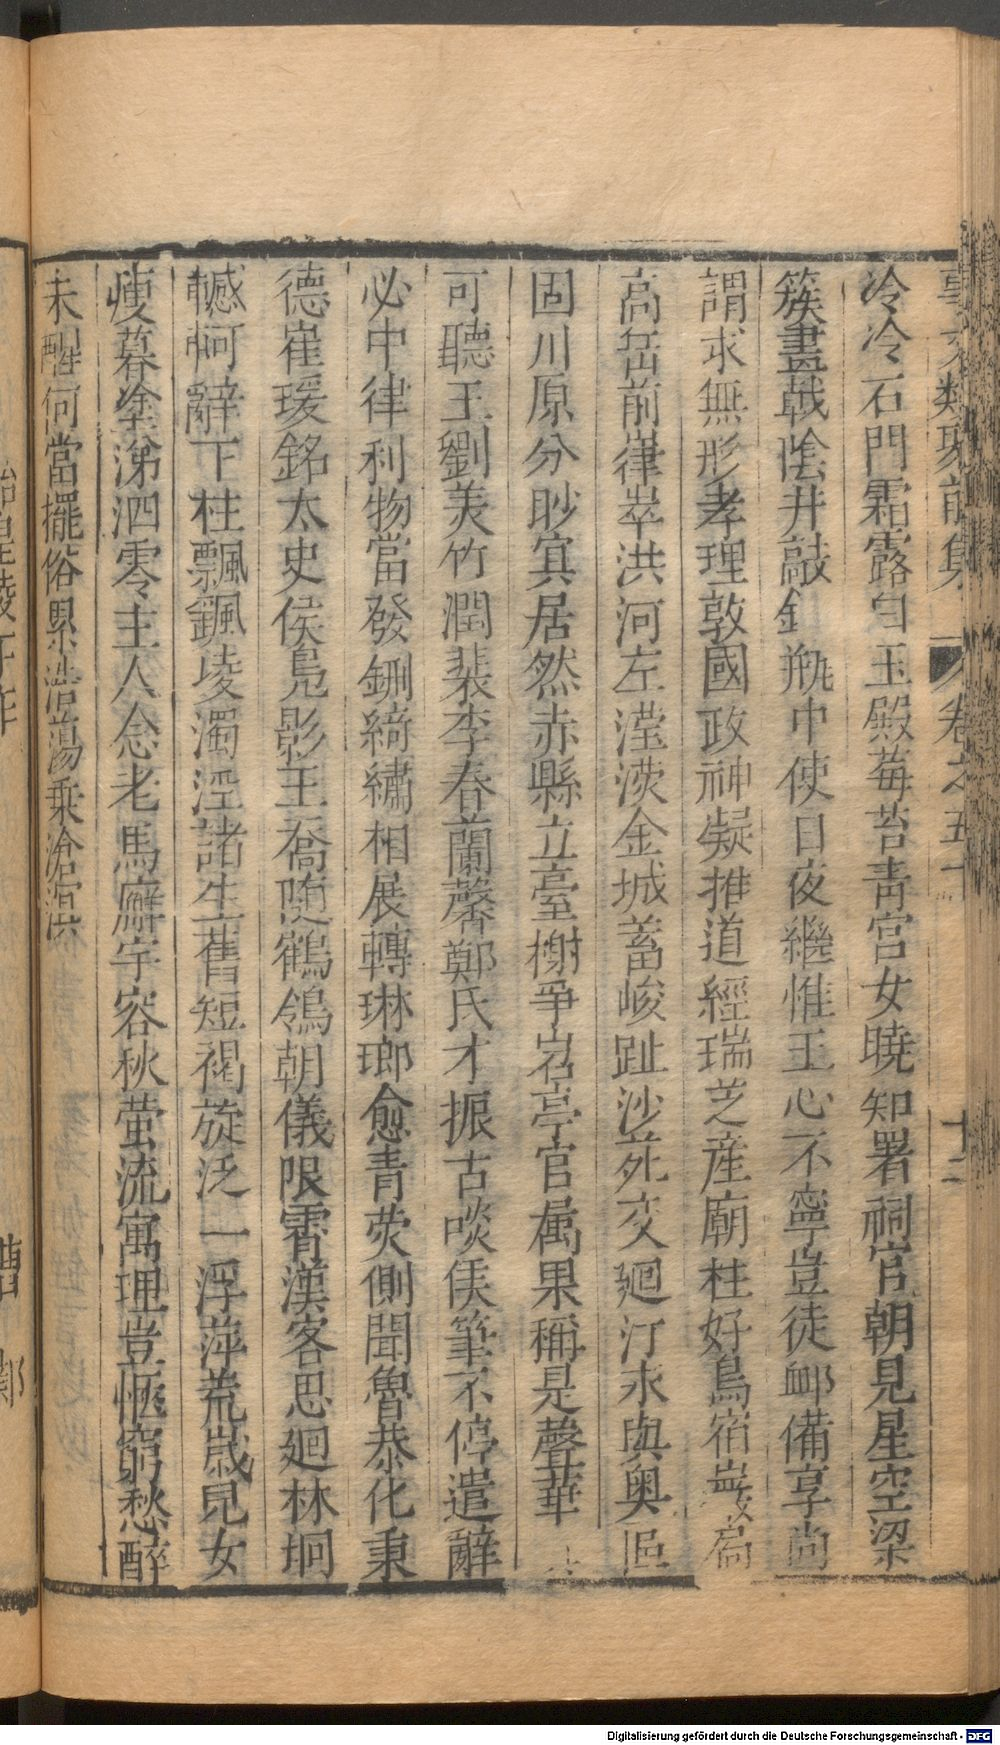 事文類聚前集 卷之五十 十二
冷冷石門霜露白玉殿莓苔青宮女曉知署祠官朝見星空梁
簇畫戟陰井敲銅瓶中使日夜繼惟王心不寧豈徒䘏備享尚
謂求無形孝理敦國政神凝推道經瑞芝産廟柱好鳥宿巖扃
高岳前嵂崒洪河左瀅濙金城蓄峻趾沙苑交廻汀永與奧區
固川原分眇冥居然赤縣立臺榭爭岧亭官属果稱是聲華
可聽王劉美竹潤裴李春蘭馨鄭氏才振古啖侯筆不停遣辭
必中律利物當發鉶綺繡相展轉琳瑯愈青荧側聞魯恭化秉
德崔瑗銘太史侯鳧影王喬随鶴翎朝儀限霄漢客思廻林坰
轗軻辭下杜飄颻凌濁涇諸生舊短褐旋泛一浮萍荒嵗兒女
瘦暮塗涕泗零主人念老馬廨宇容秋萤流寓理豈惬窮愁醉
未醒何當擺俗累浩蕩乗滄溟
Digitalisierung gefördert durch die Deutsche Forschungsgemeinschaft - DFG